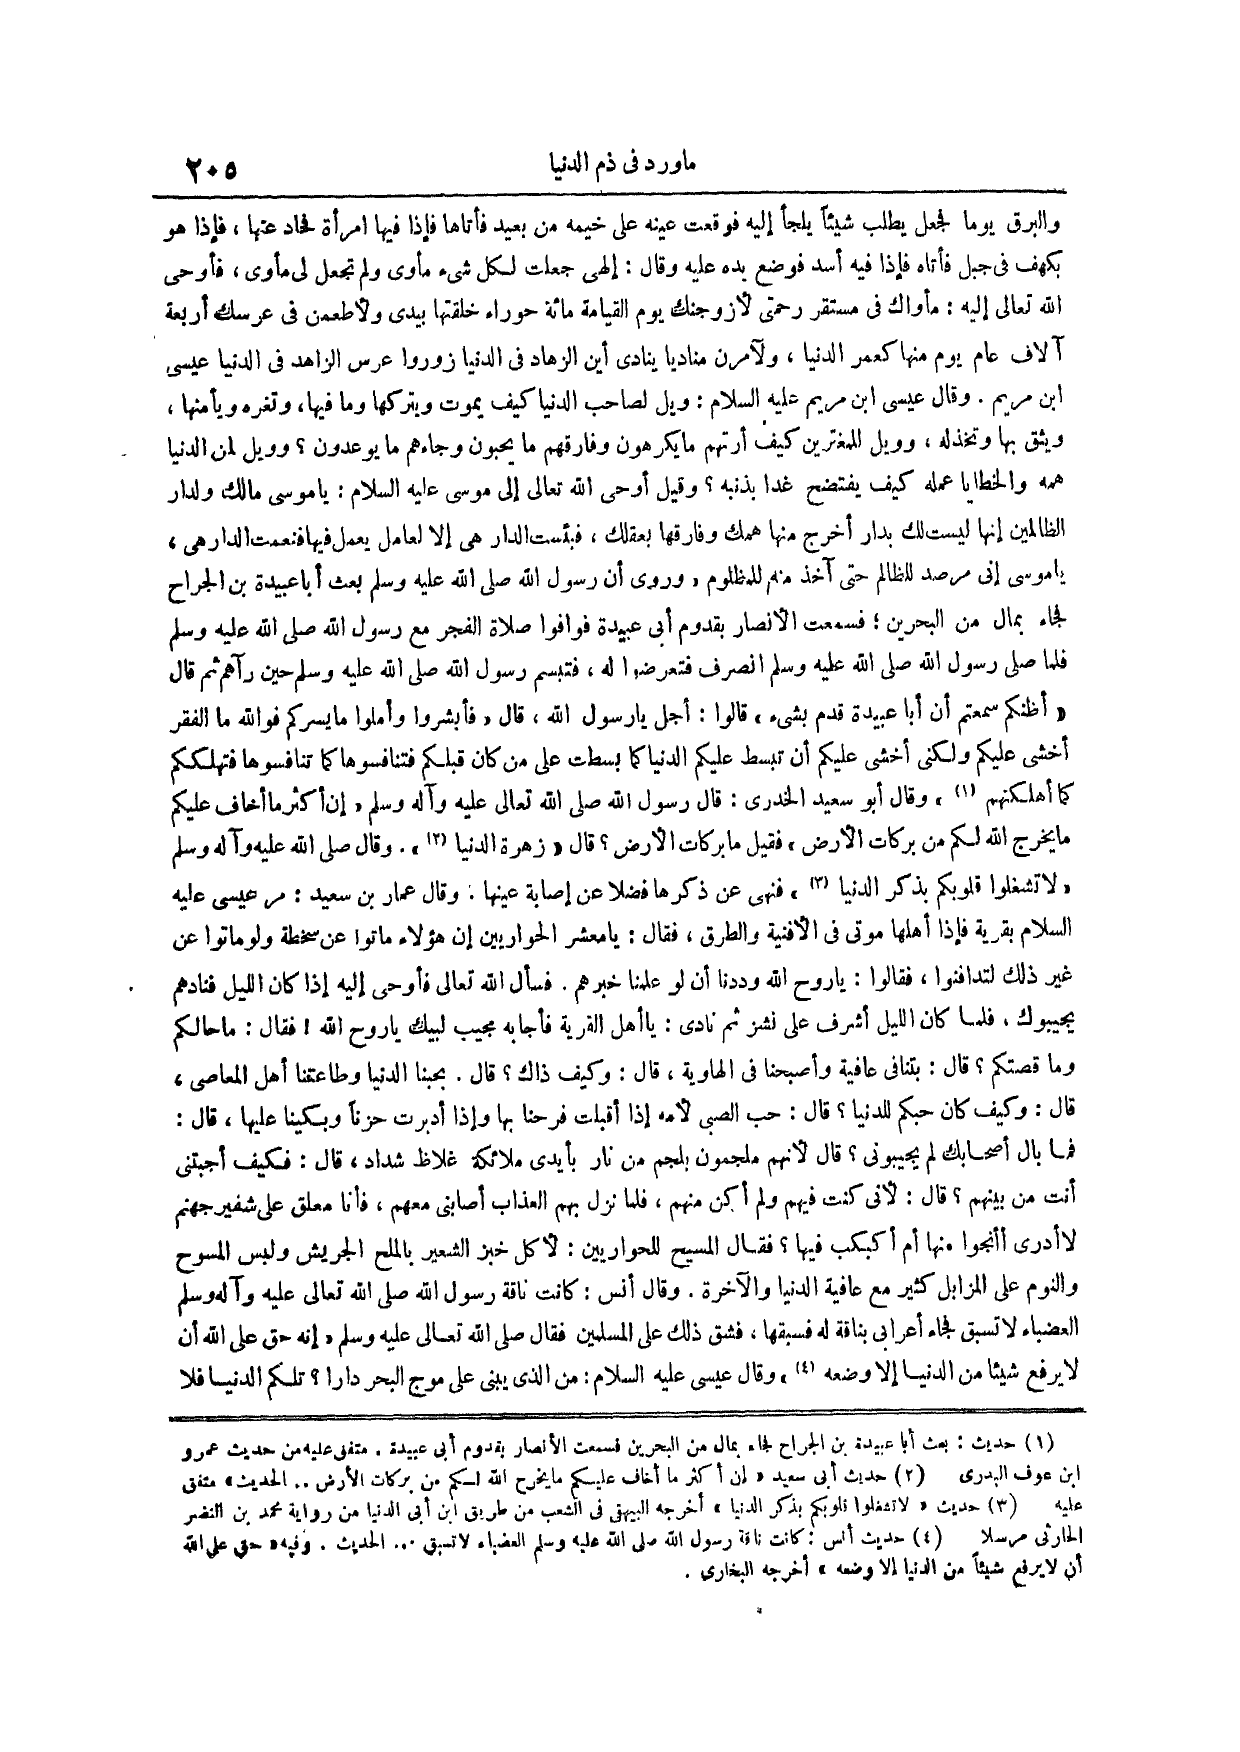 ماورد فى ذم الدنيا
٢٠٥
والبرق يوما فجعل يطلب شيئاً يلجأ إليه فوقعت عينه على خيمه من بعيد فأتاها فإذا فيها امرأة فحاد عنها ، فإذا هو
بكهف فى جبل فأتاه فإذا فيه أسد فوضع يده عليه وقال : إلهى جعلت لكل شىء مأوى ولم تجعل لى مأوى ، فأوحى
الله تعالى إليه : مأواك فى مستقر رحمتى لأزوجنك يوم القيامة مائة حوراء خلقتها بيدى ولأطعمن فى عرسك أربعة
آلاف عام يوم منها كعمر الدنيا ، ولآمرن مناديا ينادى أين الزهاد فى الدنيا زوروا عرس الزاهد فى الدنيا عيسى
ابن مريم . وقال عيسى ابن مريم عليه السلام : ويل لصاحب الدنيا كيف يموت ويتركها وما فيها ، وتغره ويأمنها ،
ويثق بها وتخذله ، وويل للمغترين كيف أرتهم مايكرهون وفارقهم ما يحبون وجاءهم ما يوعدون ؟ وويل لمن الدنيا
همه والخطايا عمله كيف يفتضح غدا بذنبه ؟ وقيل أوحى الله تعالى إلى موسى عليه السلام : ياموسى مالك ولدار
الظالمين إنها ليست لك بدار أخرج منها همك وفارقها بعقلك ، فبئست الدار هى إلا لعامل يعمل فيها فنعمت الدار هى ،
ياموسى إنى مرصد للظالم حتى آخذ منه للمظلوم « وروى أن رسول الله صلى الله عليه وسلم بعث أباعبيدة بن الجراح
فجاء بمال من البحرين ؛ فسمعت الأنصار بقدوم أبى عبيدة فوافوا صلاة الفجر مع رسول الله صلى الله عليه وسلم
فلما صلى رسول الله صلى الله عليه وسلم انصرف فتعرضوا له ، فتبسم رسول الله صلى الله عليه وسلم حين رآهم ثم قال
« أظنكم سمعتم أن أبا عبيدة قدم بشىء » قالوا : أجل يارسول الله ، قال « فأبشروا وأملوا مايسركم فوالله ما الفقر
أخشى عليكم ولكنى أخشى عليكم أن تبسط عليكم الدنيا كما بسطت على من كان قبلكم فتنافسوها كما تنافسوها فتهلككم
كما أهلكتهم (١) » وقال أبو سعيد الخدرى : قال رسول الله صلى الله تعالى عليه وآله وسلم « إن أكثر ما أخاف عليكم
مايخرج الله لكم من بركات الأرض » فقيل مابركات الأرض ؟ قال « زهرة الدنيا (٢) » . وقال صلى الله عليه وآله وسلم
« لاتشغلوا قلوبكم بذكر الدنيا (٣) » فنهى عن ذكرها فضلا عن إصابة عينها . وقال عمار بن سعيد : مر عيسى عليه
السلام بقرية فإذا أهلها موتى فى الأفنية والطرق ، فقال : يامعشر الحواريين إن هؤلاء ماتوا عن سخطة ولو ماتوا عن
غير ذلك لتدافنوا ، فقالوا : ياروح الله وددنا أن لو علمنا خبرهم . فسأل الله تعالى فأوحى إليه إذا كان الليل فنادهم
يجيبوك ، فلما كان الليل أشرف على نشز ثم نادى : ياأهل القرية فأجابه مجيب لبيك ياروح الله ! فقال : ماحالكم
وما قصتكم ؟ قال : بتنافى عافية وأصبحنا فى الهاوية ، قال : وكيف ذاك ؟ قال . بحبنا الدنيا وطاعتنا أهل المعاصى ،
قال : وكيف كان حبكم للدنيا ؟ قال : حب الصبى لأمه إذا أقبلت فرحنا بها وإذا أدبرت حزناً وبكينا عليها ، قال :
فما بال أصحابك لم يجيبونى ؟ قال لأنهم ملجمون بلجم من نار بأيدى ملائكة غلاظ شداد ، قال : فكيف أجبتنى
أنت من بينهم ؟ قال : لأنى كنت فيهم ولم أكن منهم ، فلما نزل بهم العذاب أصابنى معهم ، فأنا معلق على شفير جهنم
لاأدرى أأنجوا منها أم أكبكب فيها ؟ فقال المسيح للحواريين : لأكل خبز الشعير بالملح الجريش ولبس المسوح
والنوم على المزابل كثير مع عافية الدنيا والآخرة . وقال أنس : كانت ناقة رسول الله صلى الله تعالى عليه وآله وسلم
العضباء لاتسبق فجاء أعرابى بناقة له فسبقها ، فشق ذلك على المسلمين فقال صلى الله تعالى عليه وسلم « إنه حق على الله أن
لايرفع شيئا من الدنيا إلا وضعه (٤) » وقال عيسى عليه السلام : من الذى يبنى على موج البحر دارا ؟ تلكم الدنيا فلا
(١) حديث : بعث أبا عبيدة بن الجراح فجاء بمال من البحرين فسمعت الأنصار بقدوم أبى عبيدة . متفق عليه من حديث عمرو
ابن عوف البدرى (٢) حديث أبى سعيد « إن أكثر ما أخاف عليكم مايخرج الله لكم من بركات الأرض .. الحديث » متفق
عليه (٣) حديث « لاتشغلوا قلوبكم بذكر الدنيا » أخرجه البيهقى فى الشعب من طريق ابن أبى الدنيا من رواية محمد بن النضر
الحارثى مرسلا (٤) حديث أنس : كانت ناقة رسول الله صلى الله عليه وسلم العضباء لاتسبق ... الحديث . وفيه « حق على الله
أن لايرفع شيئاً من الدنيا إلا وضعه » أخرجه البخارى .